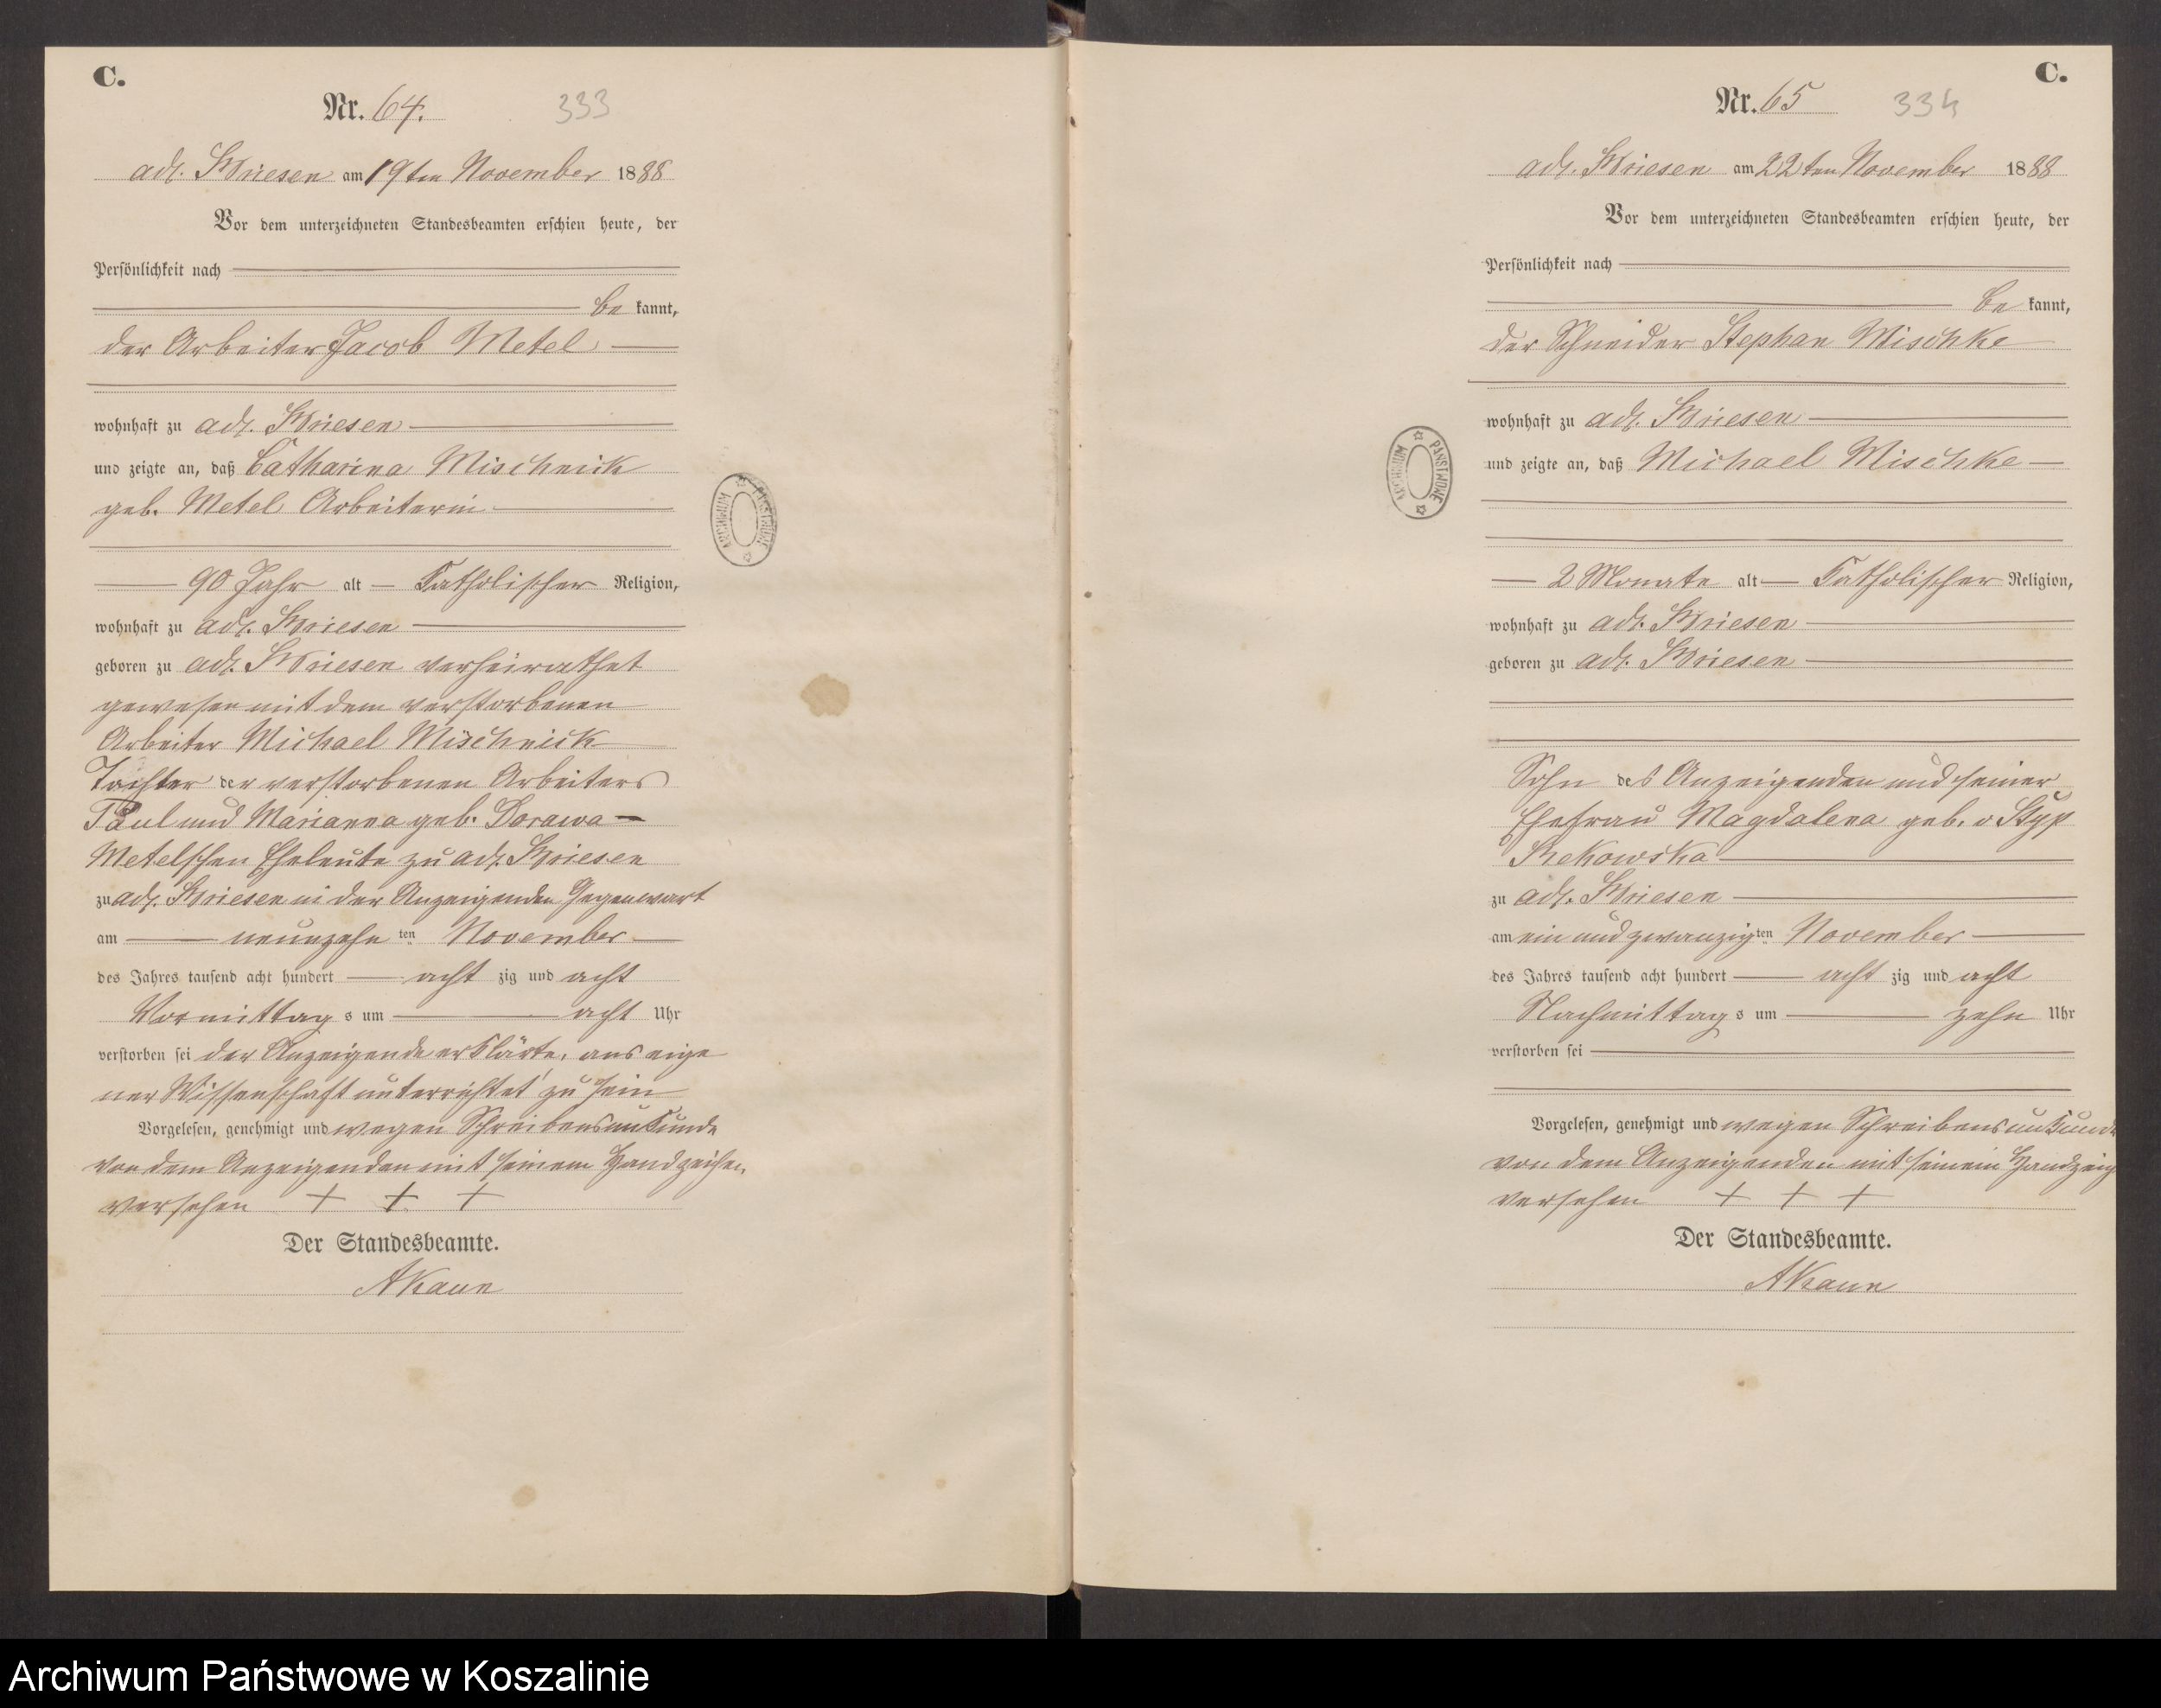 C.
Nr. 64. 333
adl. Briesen am 19ten November 1888
Vor dem unterzeichneten Standesbeamten erschien heute, der
Persönlichkeit nach
be kannt,
der Arbeiter Jacob Metel
wohnhaft zu adl. Briesen
und zeigte an, daß Catharina Mischnick
geb. Metel Arbeiterin
90 Jahr alt katholischer Religion,
wohnhaft zu adl. Briesen
geboren zu adl. Briesen verheirathet
gewesen mit dem verstorbenen
Arbeiter Michael Mischnick
Tochter der verstorbenen Arbeiters
Paul und Marianna geb. Dorawa
Metelschen Eheleute zu adl. Briesen
zu adl. Briesen in der Anzeigenden Gegenwart
am neunzehn ten November
des Jahres tausend acht hundert acht zig und acht
Vormittag s um acht Uhr
verstorben sei der Anzeigende erklärte, aus eige
ner Wissenschaft unterrichtet zu sein
Vorgelesen, genehmigt und wegen Schreibensunkunde
von dem Anzeigenden mit seinem Handzeichen
versehen + + +
Der Standesbeamte.
AKaun
ARCHIWUM PAŃSTWOWE
C.
Nr. 65 334
adl. Briesen am 22ten November 1888
Vor dem unterzeichneten Standesbeamten erschien heute, der
Persönlichkeit nach
be kannt,
der Schneider Stephan Mischke
wohnhaft zu adl. Briesen
und zeigte an, daß Michael Mischke
2 Monate alt katholischer Religion,
wohnhaft zu adl. Briesen
geboren zu adl. Briesen
Sohn des Anzeigenden und seiner
Ehefrau Magdalena geb. v Styp
Rekowska
zu adl. Briesen
am ein und zwanzig ten November
des Jahres tausend acht hundert acht zig und acht
Nachmittag s um zehn Uhr
verstorben sei
Vorgelesen, genehmigt und wegen Schreibensunkunde
von dem Anzeigenden mit seinem Handzeich
versehen + + +
Der Standesbeamte.
AKaun
ARCHIWUM PAŃSTWOWE
Archiwum Państwowe w Koszalinie